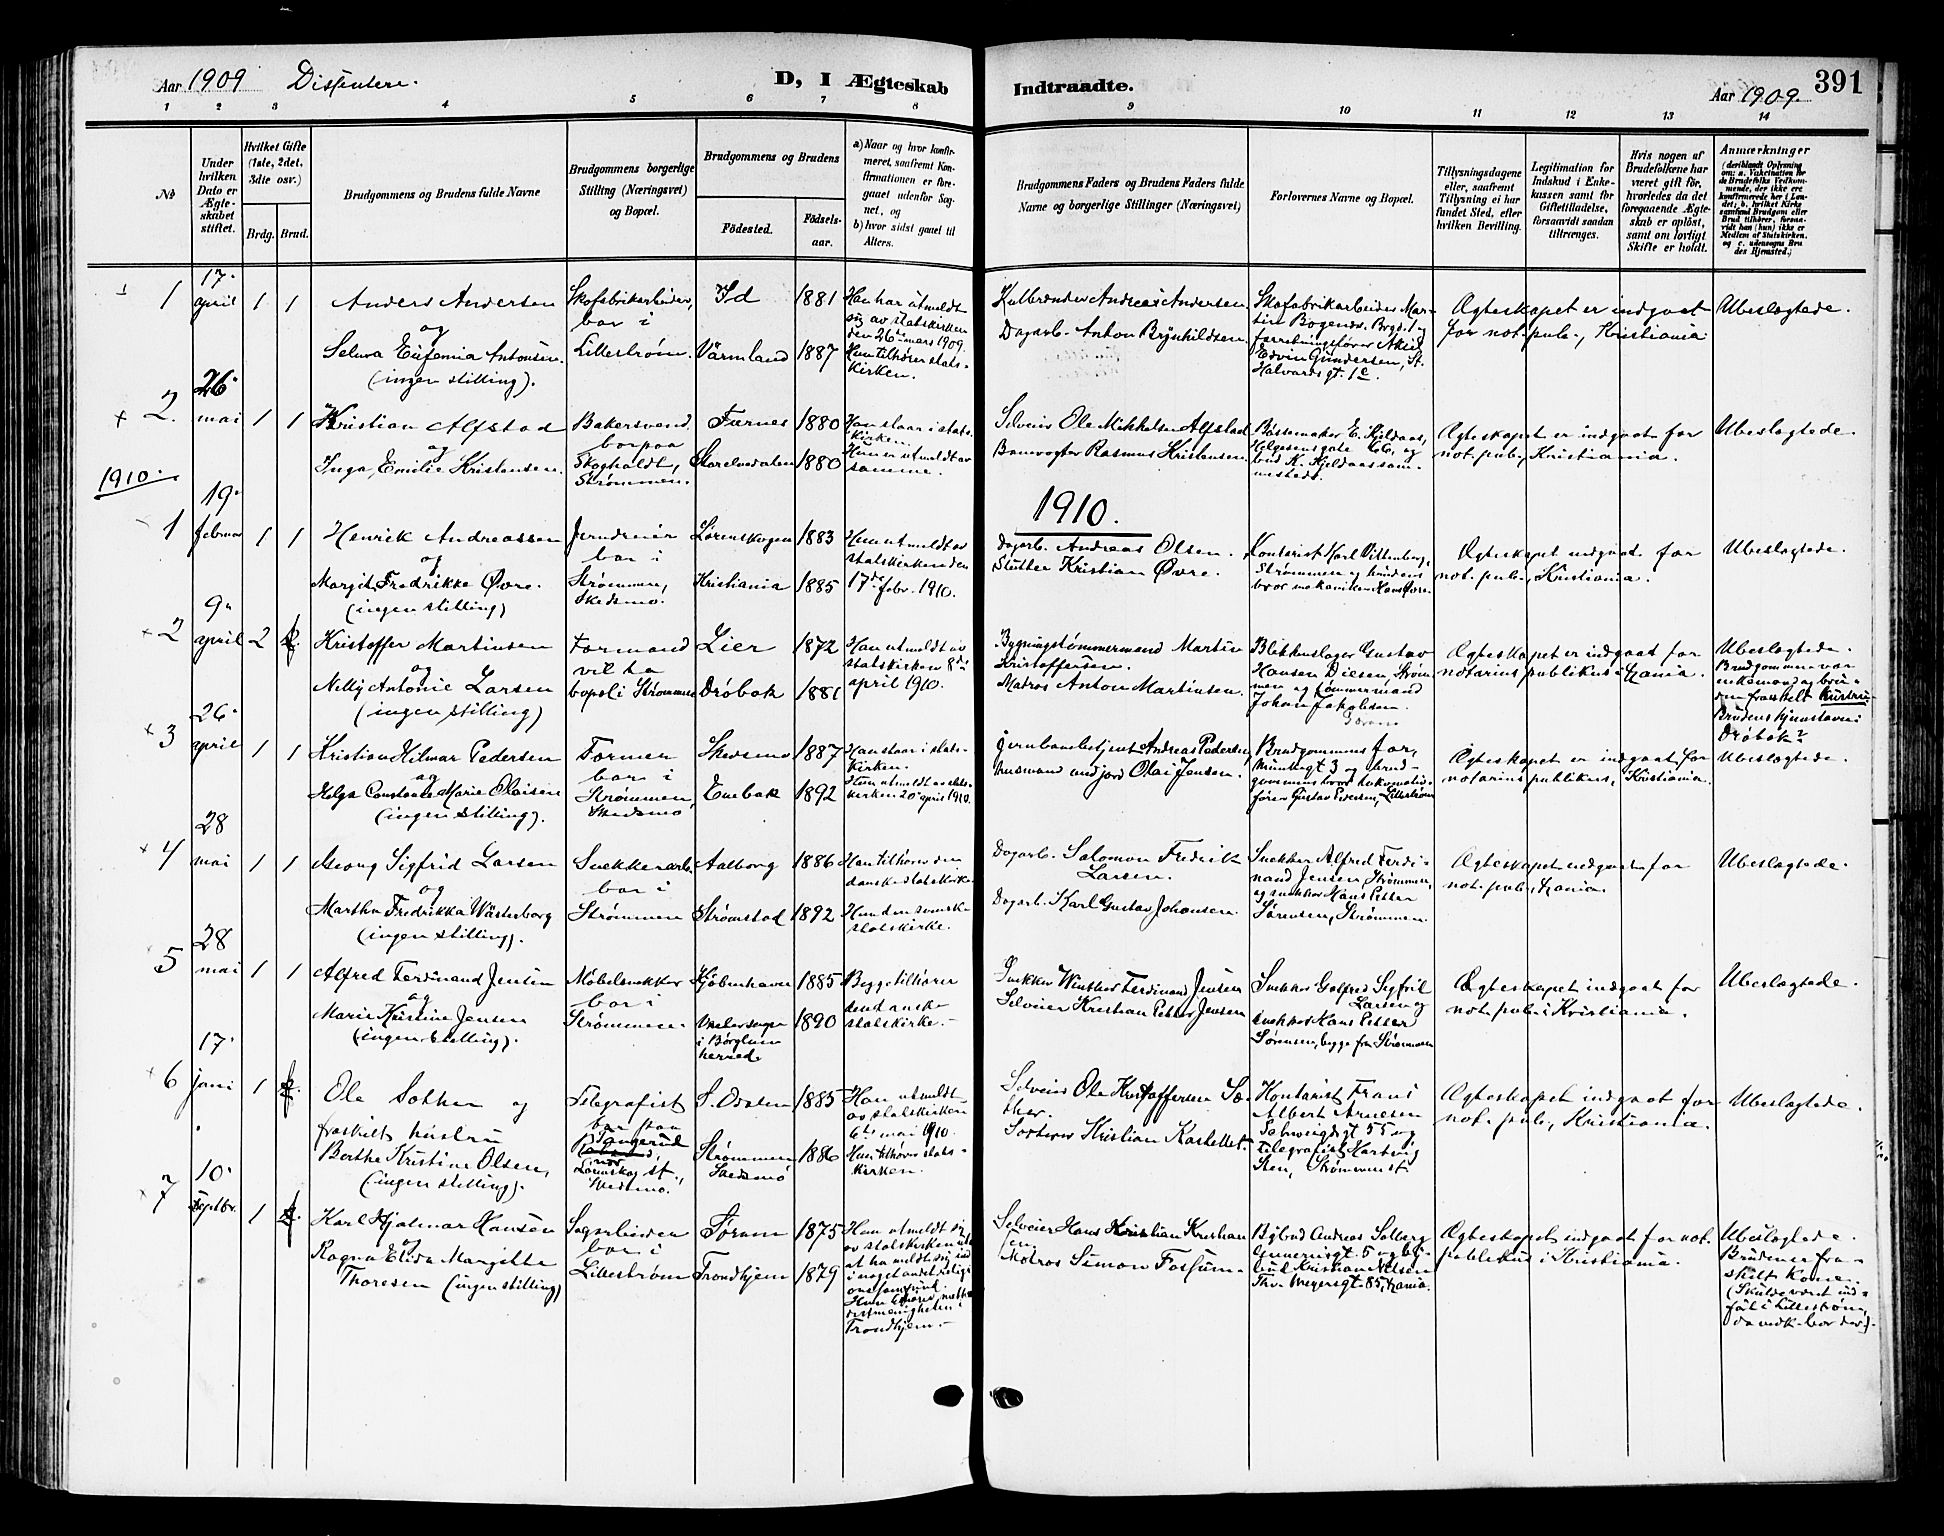 Aar 1909 Dissentere.
D, I Ægteskab
Indtraadte.
Aar 1909.
391
1 2 3 4 5 6 7 8
9 10 11 12 13 14
№
Under hvilken Dato er Ægteskabet stiftet.
Hvilket Gifte (1ste, 2det, 3die osv.)
Brdg. Brud.
Brudgommens og Brudens fulde Navne
Brudgommens borgerlige Stilling (Næringsvei) og Bopæl.
Brudgommens og Brudens
Fødested.
Fødselsaar.
a) Naar og hvor konfirmeret, saafremt Konfirmationen er foregaaet udenfor Sognet, og
b) hvor sidst gaaet til Alters.
Brudgommens Faders og Brudens Faders fulde Navne og borgerlige Stillinger (Næringsvei)
Forlovernes Navne og Bopæl.
Tillysningsdagene eller, saafremt Tillysning ei har fundet Sted, efter hvilken Bevilling.
Legitimation for Indskud i Enkekassen samt for Giftetilladelse, forsaavidt saadan tiltrænges.
Hvis nogen af Brudefolkene har været gift før, hvorledes da det foregaaende Ægteskab er opløst, samt om lovligt Skifte er holdt.
Anmærkninger
1
17. april
1 1
Anders Andersen
og
Selma Eufemia Antonsen.
(ingen stilling).
Skofabrikarbeider,
bor i
Lillestrøm.
Id 1881
Värmland 1887
Han har utmeldt
sig av statskirken
den 26de mars 1909.
Hun tilhører statskirken.
Kulbrænder Andreas Andersen
Dagarb. Anton Brynhildsen
Skofabrikarbeider Martin
Edvin Gundersen, St.
Halvards gt. 1c.
Ægteskapet er indgaat
for not. pub., Kristiania
Ubeslægtede.
2.
26. mai
1 1
Kristian Alfstad
og
Inga Emilie Kristensen.
Bakersvend
bor paa
Strømmen.
Furnes 1880
Storelvedalen 1880
Han staar i statskirken.
Hun er utmeldt av
samme.
Selveier Ole Mikkelsen Alfstad
Banevogter Rasmus Kristensen.
Bøssemaker E. Kjeldaas,
Helgesensgate 66, og
K. Kjeldaas sammesteds.
Ægteskapet er indgaat for
not. pub., Kristiania.
Ubeslægtede.
1910.
1910.
1
19. februar
1 1
Henrik Andreassen
og
Margit Fredrikke Øvre.
(ingen stilling)
Jerndreier
bor i
Strømmen,
Skedsmo.
Lørenskogen 1883
Kristiania 1885
Hun utmeldt av
statskirken den
17de febr. 1910.
Dagarb. Andreas Olsen.
Slutter Kristian Øvre.
Kontorist Karl Vittenberg,
Strømmen og brudens
bror mekaniker Hans Øvre.
Ægteskapet indgaat for
not. pub., Kristiania.
Ubeslægtede.
2
9. april
2
Kristoffer Martinsen
og
Nelly Antonie Larsen
(ingen stilling)
Formand
vil ta
bopæl i Strømmen
Lier 1872
Drøbak 1881
Han utmeldt av
statskirken 8de
april 1910.
Bygningstømmermand Martin
Kristoffersen.
Matros Anton Martinsen.
Blikkenslager Gustav
Hansen Diesen, Strømmen
og tømmermand
Johan Jakobsen
Ægteskapet er indgaat for
notarius publikus i Krania.
Ubeslægtede.
Brudgommen var
enkemand og bruden
fraskilt hustru.
Brudens hjemstavn:
Drøbak?
3
26. april
1 1
Kristian Hilmar Pedersen
og
Helga Constance Marie Olaisen
(ingen stilling).
Former
bor i
Strømmen,
Skedsmo
Skedsmo 1887
Enebak 1892
Han staar i statskirken.
Hun utmeldt av statskirken
20de april 1910.
Jernbanebetjent Andreas Pedersen
Olai Jensen.
Brudgommens far,
Munkegt 3 og brudgommens
bror lokomotivfører
Gustav Pedersen, Lillestrøm
Ægteskapet er indgaat for
notarius publikus, Kristiania.
Ubeslægtede.
4
28 mai
1 1
Georg Sigfrid Larsen
og
Martha Fredrikka Wästerberg
(ingen stilling).
Snekkerarb.
bor i
Strømmen
Aalborg 1886
Strømstad 1892
Han tilhører den
danske statskirke.
Hun den svenske
statskirke.
Dagarb. Salomon Fredrik
Larsen.
Dagarb. Karl Gustav Johansen.
Snekker Alfred Ferdinand
Jensen, Strømmen,
og snekker Hans Petter
Sørensen, Strømmen
Ægteskapet indgaat for
not. pub., Krania.
Ubeslægtede.
5
28 mai
1 1
Alfred Ferdinand Jensen
og
Marie Kristine Jensen
(ingen stilling).
Møbelsnekker
bor i
Strømmen.
Kjøbenhavn 1885
i Børglum
herred 1890
Begge tilhører
den danske
statskirke.
Snekker Winther Ferdinand Jensen
Selveier Kristian Petter Jensen
Snekker Golfred Sigfrid
Larsen og
snekker Hans Petter
Sørensen, begge fra Strømmen
Ægteskapet indgaat for
not. pub. i Kristiania.
Ubeslægtede.
6
17. juni
1
Ole Sæther og
fraskilt hustru
Berthe Kristine Olsen,
(ingen stilling).
Telegrafist
bor paa
Skedsmo.
S. Odalen 1885
Strømmen
Skedsmo 1886
Han utmeldt
av statskirken
6te mai 1910.
Hun tilhører statskirken.
Selveier Ole Kristoffersen Sæther.
Kristian Kastellet.
Kontorist Frans
Albert Arnesen
55 og
telegrafist Hartvig
Sten, Strømmen st
Ægteskapet indgaat for
not. pub., Kristiania.
Ubeslægtede.
7
10. septbr.
1
Karl Hjalmar Hansen
og
Ragna Elida Margitte
Thoresen (ingen stilling)
Sagarbeider
bor i
Lillestrøm
1875
Trondhjem 1879
Han utmeldt sig
av statskirken uten
at ha meldt sig ind
i noget andet religionssamfund.
Hun tilhører metodistmenigheten
i
Trondhjem.
Selveier Hans Kristian Kristiansen
Matros Simon Fossum.
Bybud Andreas Solberg
5 og bybud
Kristian Nilsen
Thv. Meyersgt 85, Krania.
Ægteskapet indgaat for not.
publikus i Kristiania.
Ubeslægtede.
Bruden er fraskilt
kone.
(Skulde været indført
i Lillestrøm,
da vedk. bor der).